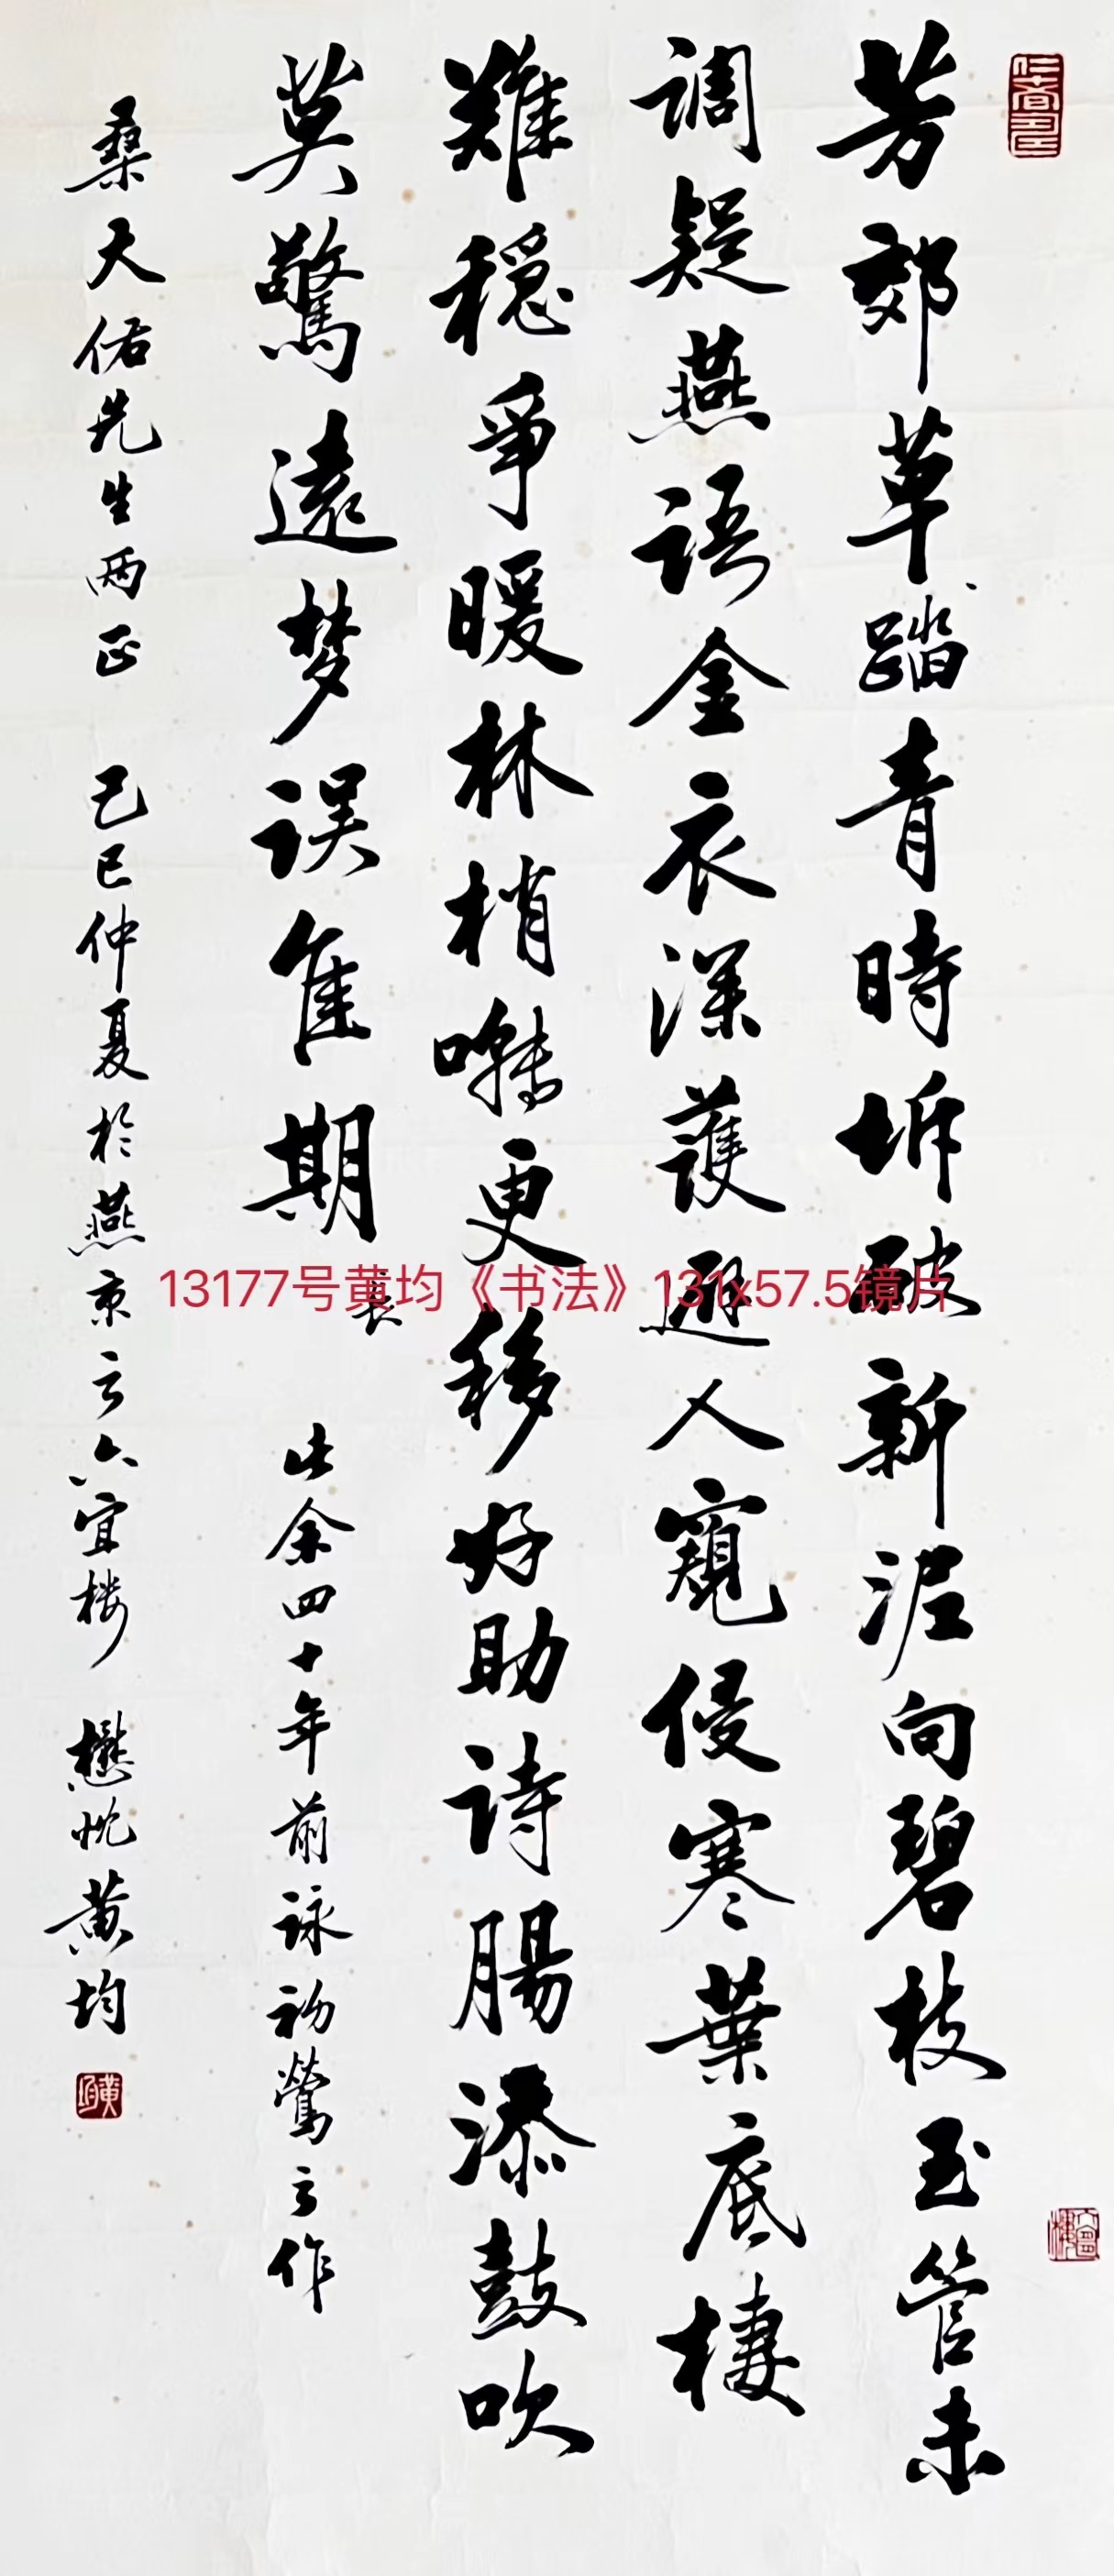 芳郊草踏青時坼破新泥向碧枝玉管未
調疑燕語金衣深護避人窺侵寒葉底棲
難穩爭暖林梢囀更移好助詩腸添鼓吹
莫驚遠梦误隹期
此余四十年前詠初鶯之作
桑大偌先生两正
己巳仲夏於燕京之六宜楼
懋忱黄均
黄均
13177号黄均《书法》131x57.5镜片